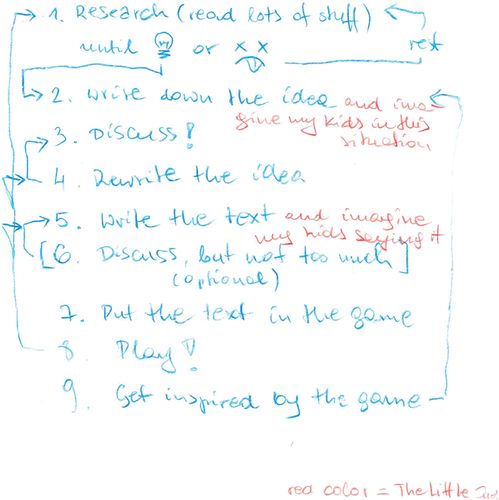 1. Research (read lots of stuff)
until or
rest
2. Write down the idea and ima-
gine my kids in this
situation
3. Discuss!
4. Rewrite the idea
5. Write the text and imagine
my kids saying it
[6. Discuss, but not too much]
(optional)
7. Put the text in the game
8. Play!
9. Get inspired by the game
red color = The Little